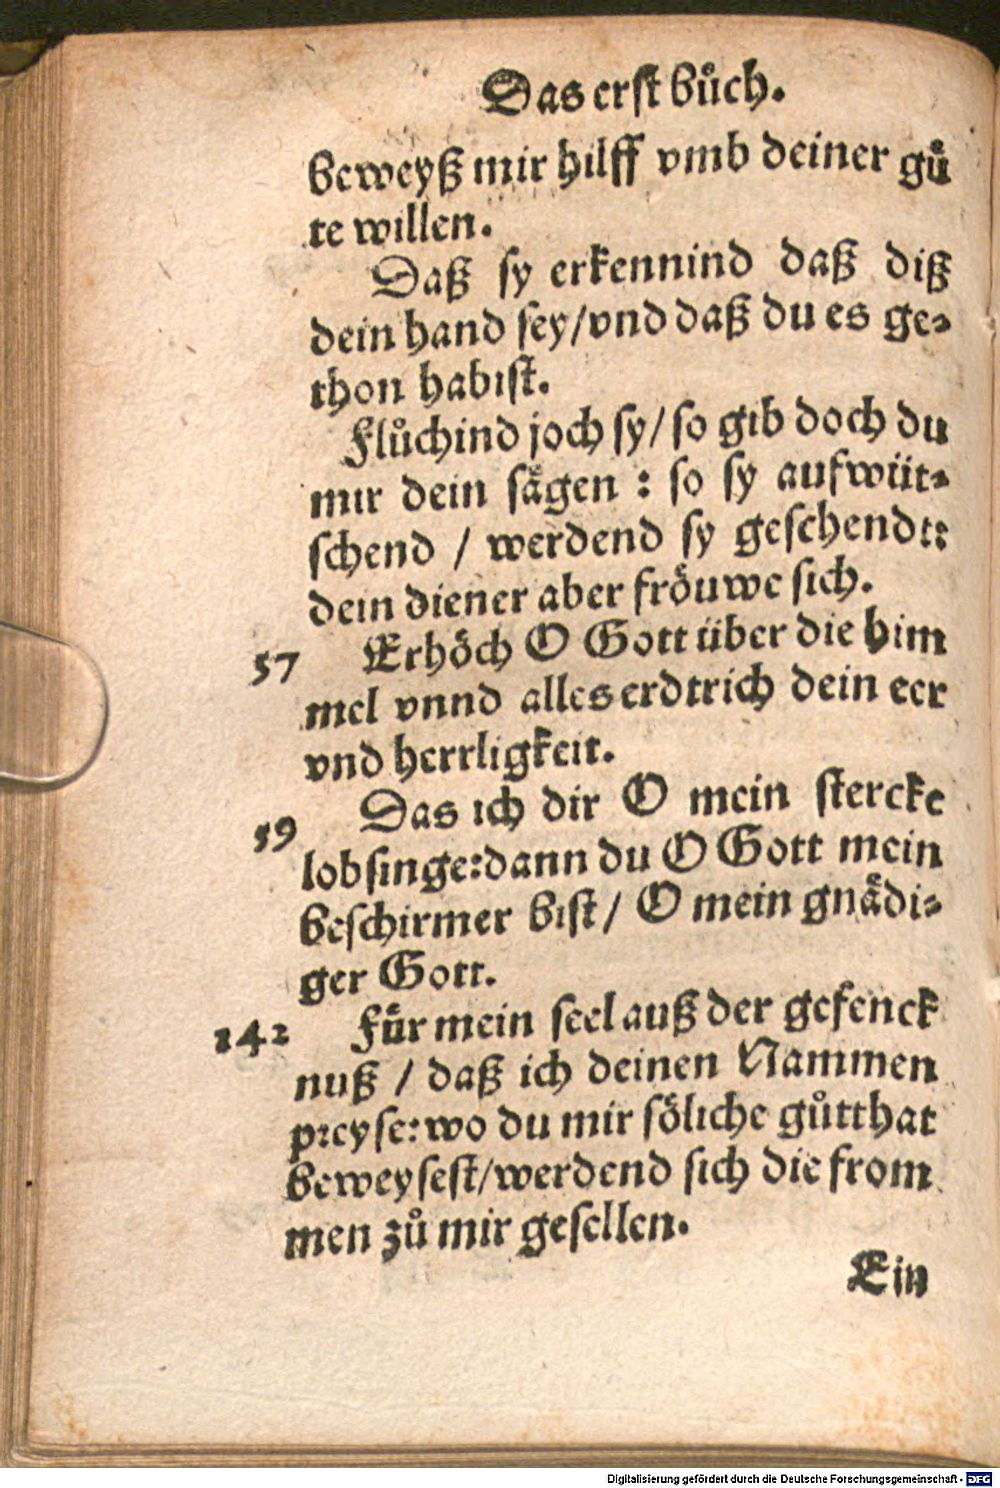 Das erst bůch.
beweyß mir hilff vmb deiner gů
te willen.
Daß sy erkennind daß diß
dein hand sey/vnd daß du es ge-
thon habist.
Flůchind joch sy/so gib doch du
mir dein sågen : so sy aufwüt-
schend / werdend sy geschendt:
dein diener aber frőuwe sich.
57 Erhőch O Gott über die him
mel vnnd alles erdtrich dein eer
vnd herrligkeit.
59 Das ich dir O mein stercke
lobsinge:dann du O Gott mein
beschirmer bist/ O mein gnådi-
ger Gott.
142 Für mein seel auß der gefenck
nuß / daß ich deinen Nammen
preyse:wo du mir sőliche gůtthat
beweysest/werdend sich die from
men zů mir gesellen.
Ein
Digitalisierung gefördert durch die Deutsche Forschungsgemeinschaft - DFG